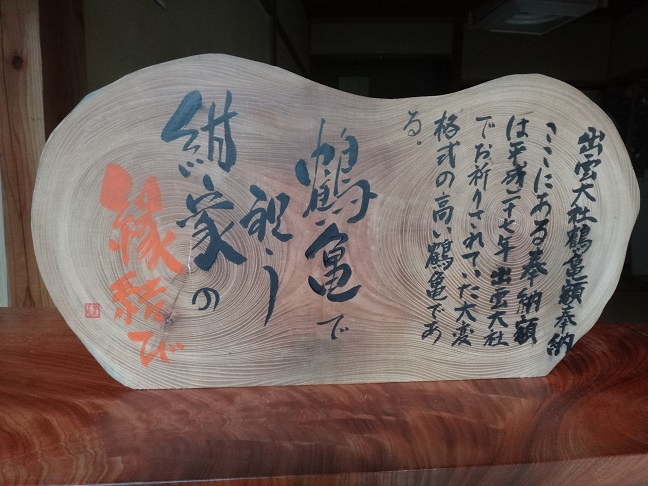 出雲大社鶴亀額奉納
ここにある奉納額
は平成二十七年出雲大社
でお祈りされていた大変
格式の高い鶴亀であ
る.
鶴亀で
祝う
紺家の
縁結び